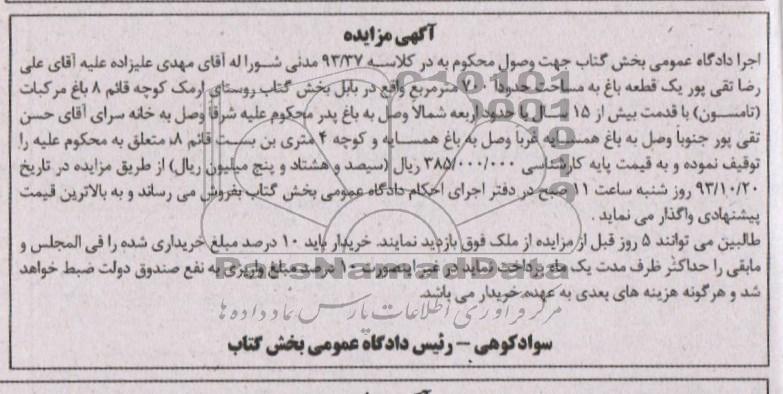 آگهی مزایده
اجرا دادگاه عمومی بخش گتاب جهت وصول محکوم به در کلاسه ۹۳/۳۷ مدنی شورا له آقای مهدی علیزاده علیه آقای علی
رضا تقی پور یک قطعه باغ به مساحت حدودا ۷۰۰ مترمربع واقع در بابل بخش گتاب روستای ارمک کوچه قائم ۸ باغ مرکبات
(تامسون) با قدمت بیش از ۱۵ سال با حدود اربعه شمالاً وصل به باغ پدر محکوم علیه شرقاً وصل به خانه سرای آقای حسن
تقی پور جنوباً وصل به باغ همسایه غرباً وصل به باغ همسایه و کوچه ۴ متری بن بست قائم ۸، متعلق به محکوم علیه را
توقیف نموده و به قیمت پایه کارشناسی ۳۸۵/۰۰۰/۰۰۰ ریال (سیصد و هشتاد و پنج میلیون ریال) از طریق مزایده در تاریخ
۹۳/۱۰/۲۰ روز شنبه ساعت ۱۱ صبح در دفتر اجرای احکام دادگاه عمومی بخش گتاب بفروش می رساند و به بالاترین قیمت
پیشنهادی واگذار می نماید .
طالبین می توانند ۵ روز قبل از مزایده از ملک فوق بازدید نمایند. خریدار باید ۱۰ درصد مبلغ خریداری شده را فی المجلس و
مابقی را حداکثر ظرف مدت یک ماه پرداخت نماید در غیر اینصورت ۱۰ درصد مبلغ واریزی به نفع صندوق دولت ضبط خواهد
شد و هرگونه هزینه های بعدی به عهده خریدار می باشد.
سوادکوهی – رئیس دادگاه عمومی بخش گتاب
ParsNamadData
مرکز فرآوری اطلاعات پارس نماد داده ها